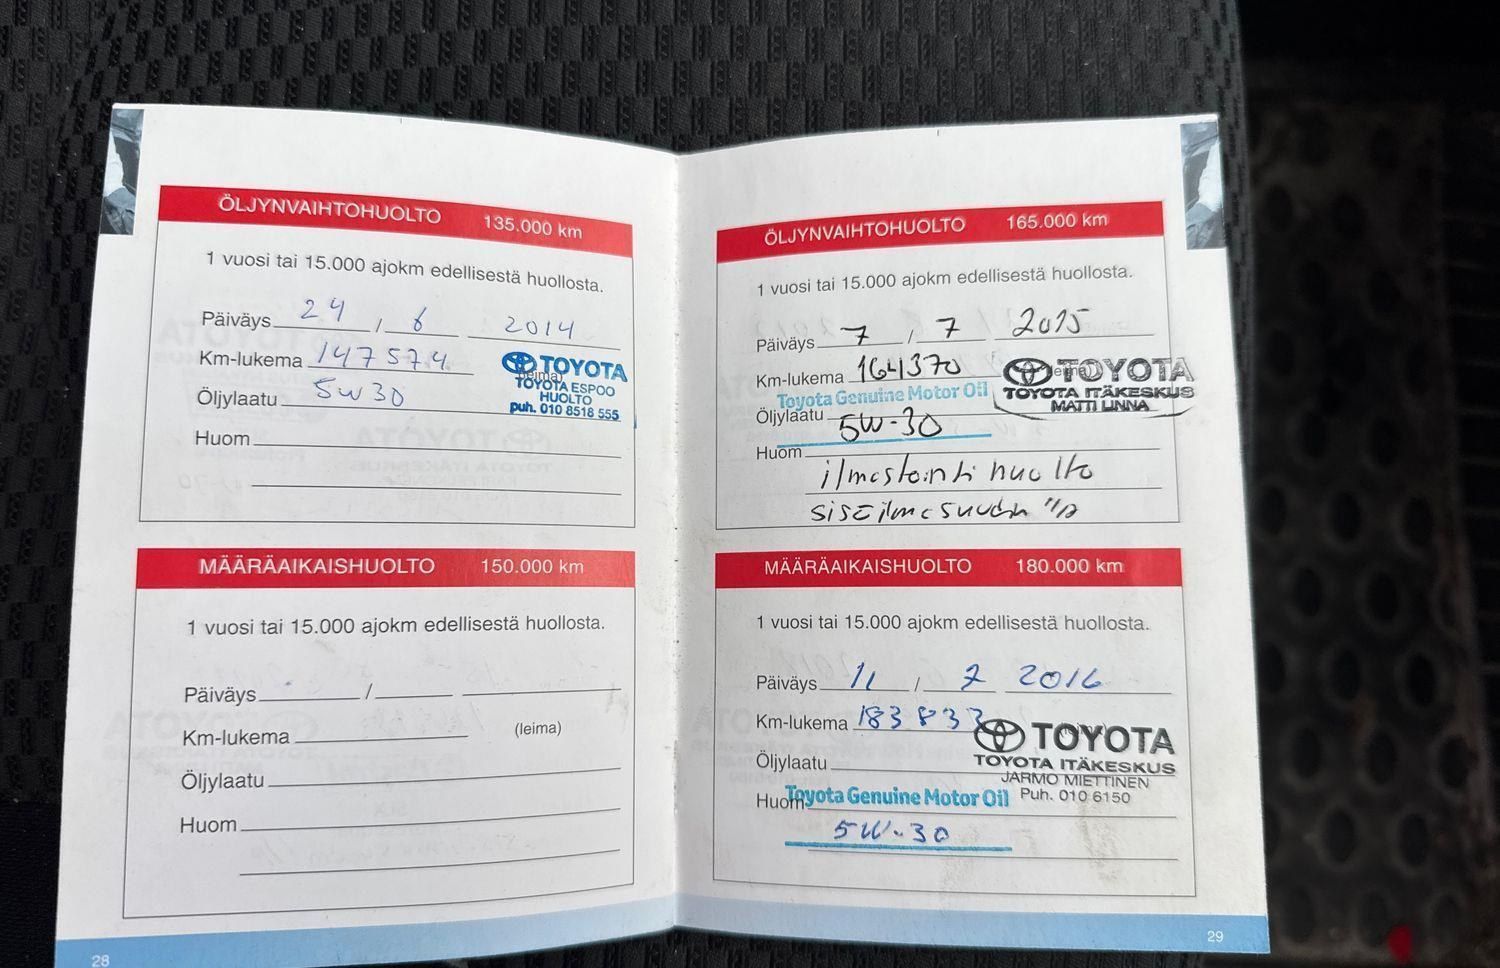 ÖLJYNVAIHTOHUOLTO 135.000 km
1 vuosi tai 15.000 ajokm edellisestä huollosta.
Päiväys 24 / 6 2014
Km-lukema 147574
TOYOTA
TOYOTA ESPOO
HUOLTO
puh. 010 8518 555
Öljylaatu 5W30
Huom
MÄÄRÄAIKAISHUOLTO 150.000 km
1 vuosi tai 15.000 ajokm edellisestä huollosta.
Päiväys /
Km-lukema (leima)
Öljylaatu
Huom
28
ÖLJYNVAIHTOHUOLTO 165.000 km
1 vuosi tai 15.000 ajokm edellisestä huollosta.
Päiväys 7 / 7 2015
Km-lukema 164370
TOYOTA
TOYOTA ITÄKESKUS
MATTI LINNA
Toyota Genuine Motor Oil
Öljylaatu 5W-30
Huom
ilmastointi huolto
sisäilmasuodin
MÄÄRÄAIKAISHUOLTO 180.000 km
1 vuosi tai 15.000 ajokm edellisestä huollosta.
Päiväys 11 / 7 2016
Km-lukema 183833
TOYOTA
TOYOTA ITÄKESKUS
JARMO MIETTINEN
Puh. 010 6150
Öljylaatu
Huom
Toyota Genuine Motor Oil
5W-30
29